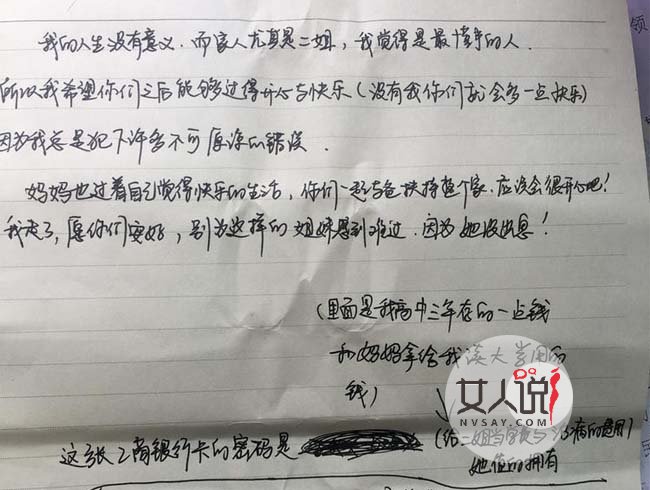 我的人生没有意义.而家人尤其是二姐,我觉得是最懂事的人.
所以我希望你们之后能够过得开心与快乐(没有我你们就会多一点快乐)
因为我总是犯下许多不可原谅的错误.
妈妈也过着自己觉得快乐的生活,你们一起与爸扶持整个家.应该会很开心吧!
我走了,愿你们安好,别为这样的姐妹感到难过.因为她没出息!
(里面是我高中三年存的一点钱
和妈妈拿给我读大学用的
钱)
这张工商银行卡的密码是
(给二姐当学费与治病的费用)
她值的拥有
女人说
NVSAY.COM
领